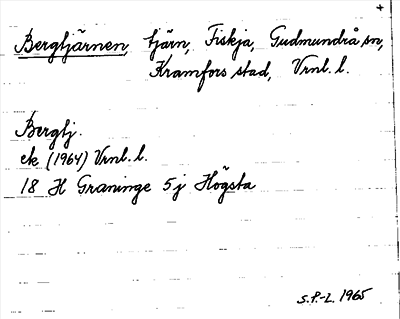 +
Bergtjärnen, tjärn, Fiskja, Gudmundrå sn,
Kramfors stad, Vrnl. l.
Bergtj.
ek (1964) Vrnl. l.
18 H Graninge 5 j Högsta
S.P-L. 1965